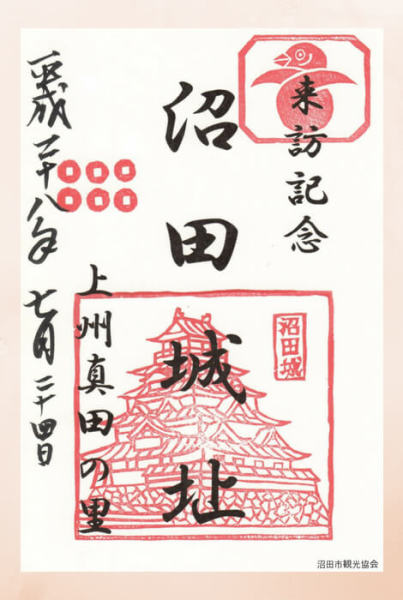 来訪記念
沼田城址
沼田城
上州真田の里
平成二十八年 七月二十四日
沼田市観光協会